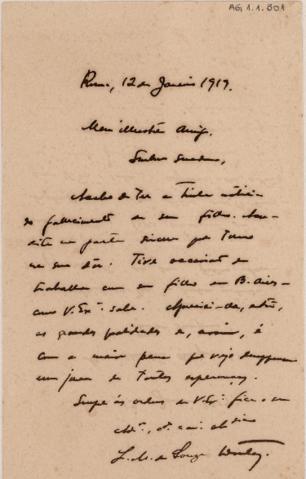 AG 1.1.801
Roma, 12 de Janeiro 1919.
Meu illustre Amigo,
Senhor
Acabo de ter a triste noticia
do fallecimento de seu filho. Acre-
dite na parte sincera que tomo
na sua dôr. Tive occasião de
trabalhar com seu filho em B. Aires
como V. Exª sabe. Apreciei-de, então,
as grandes qualidades e, assim, é
com a maior pena que vejo desapparecer
um jovem de tantas esperanças.
Sempre ás ordens de V. Exª fico o seu
L. M. de Souza